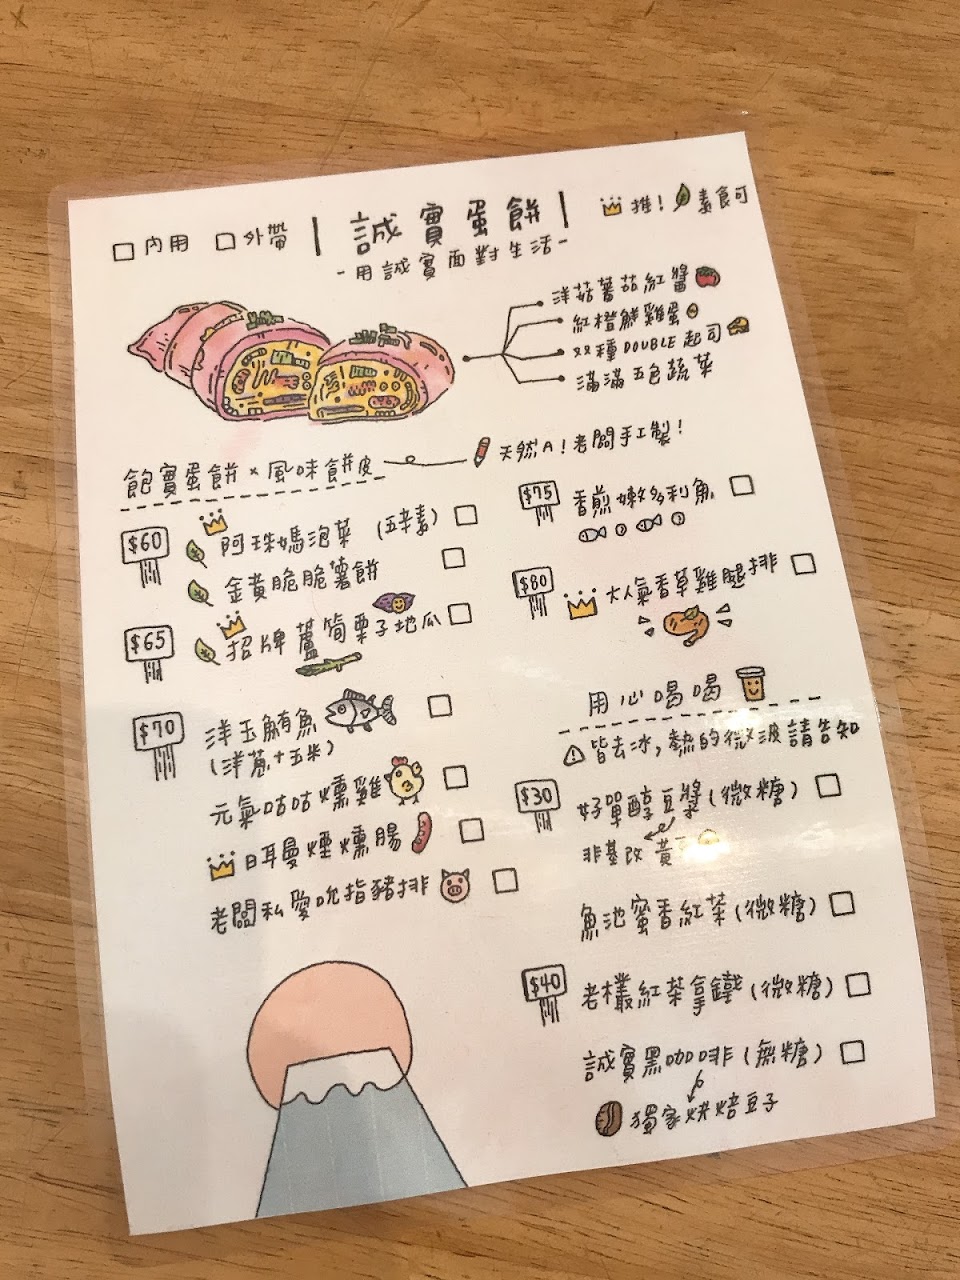 內用 外帶 誠實蛋餅 推! 素食可
-用誠實面對生活-
洋菇蕃茄紅醬
紅橙鮮雞蛋
双種DOUBLE起司
滿滿五色蔬菜
飽實蛋餅×風味餅皮
天然A!老闆手工製!
$60
阿珠媽泡菜 (五辛素)
金黃脆脆薯餅
$65
招牌蘆筍栗子地瓜
$70
洋玉鮪魚
(洋蔥+玉米)
元氣咕咕燻雞
日耳曼煙燻腸
老闆私愛吮指豬排
$75
香煎嫩多利魚
$80
大人氣香草雞腿排
用心喝喝
皆去冰,熱的微波請告知
$30
好單醇豆漿(微糖)
非基改黃
魚池蜜香紅茶(微糖)
$40
老欉紅茶拿鐵(微糖)
誠實黑咖啡(無糖)
獨家烘焙豆子